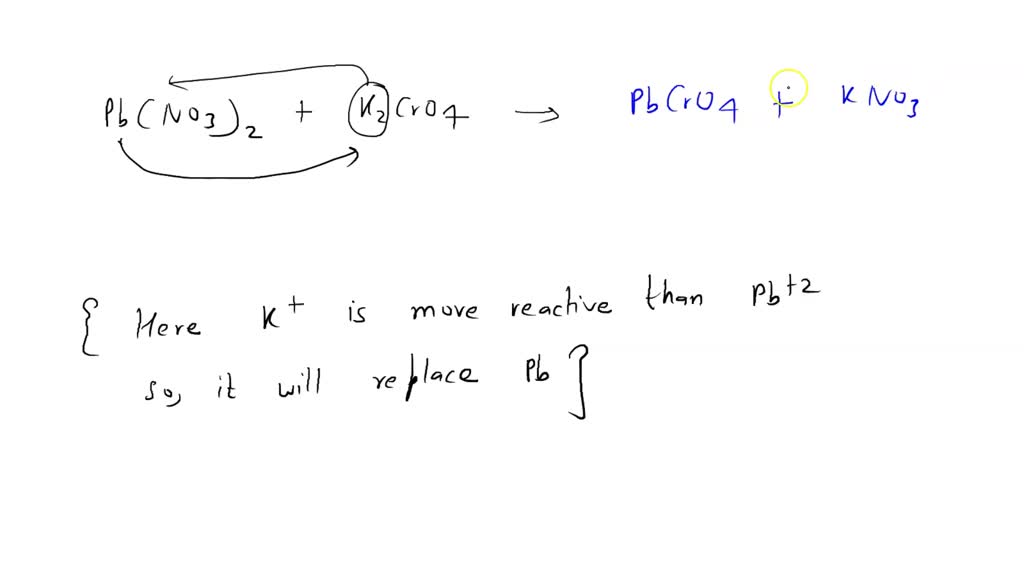 Pb(NO3)2 + K2CrO4 → PbCrO4 + KNO3
{ Here K+ is more reactive than Pb+2
so, it will replace Pb }